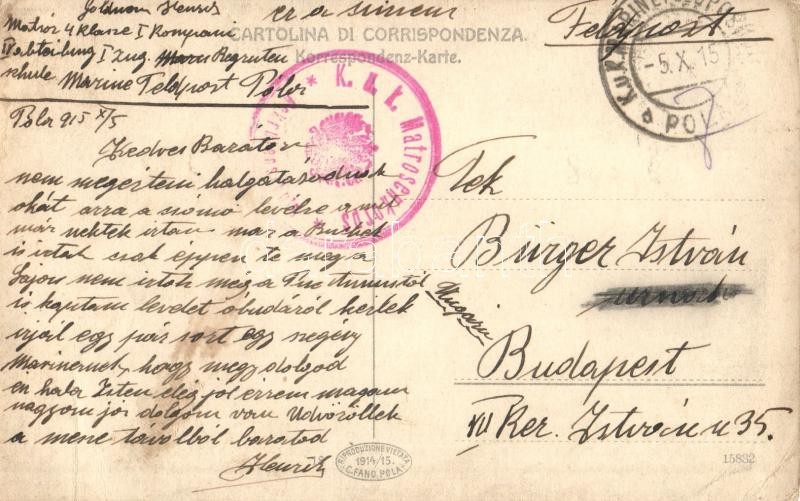 Goldman Henrik
er a címem
Matróz 4 Klasse I Kompani
Abteilung I Zug. Rekruten
schule Marine Feldpost Pola
CARTOLINA DI CORRISPONDENZA.
Korrespondenz-Karte.
Feldpost
K.u.K. MARINEFELDPOSTAMT
-5.X.15
POLA
K. u. k. Matrosenkorps
Pola 915 X/5
Kedves Barátom
nem megérteni halgatásodnak
okát arra a levelre a mit
már nektek írtam már a
is írtak csak éppen te meg a
Lajos nem írtok még a
is kaptam levelet óbudáról kérlek
írjál egy pár sort egy szegény
Marinernek, hogy megy dolgod
én hála Isten elég jól érzem magam
nagyon jó dolgom van Üdvözöllek
a messze távolból barátod
Henrik
Tek
Bürger István
Ungarn
Budapest
VII Ker. István u 35.
RIPRODUZIONE VIETATA
1914/15.
C. FANO, POLA
15832